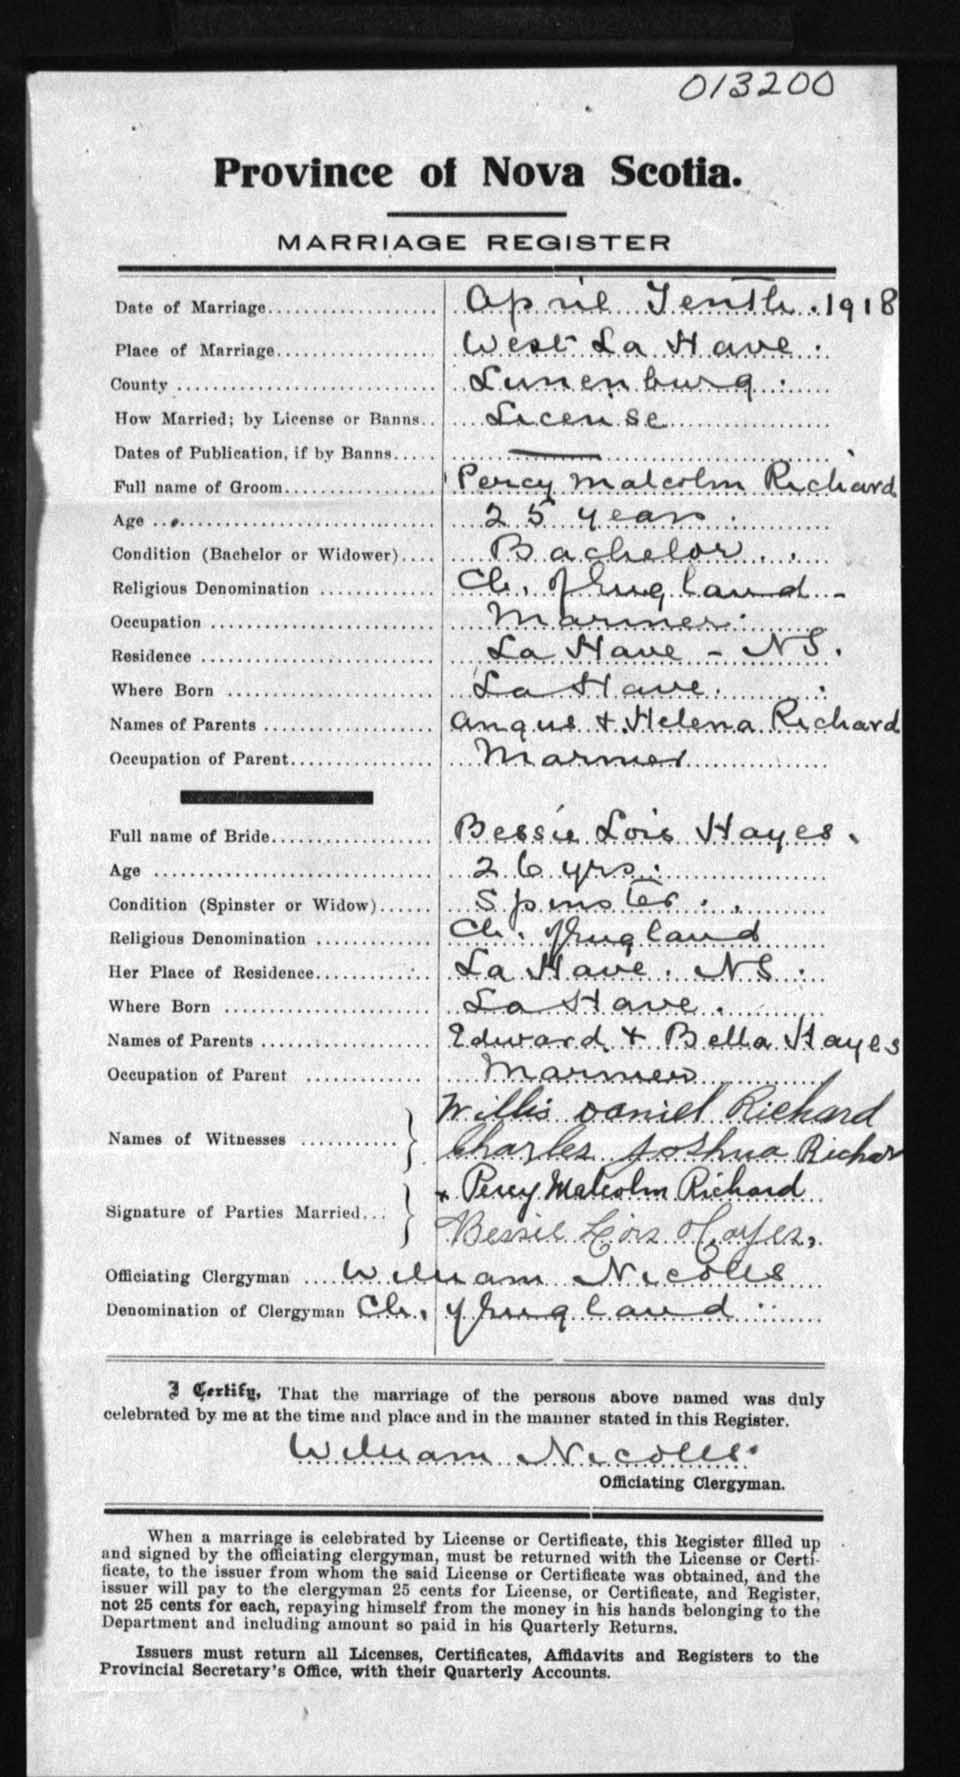 013200
Province of Nova Scotia.
MARRIAGE REGISTER
Date of Marriage.................... April Tenth. 1918
Place of Marriage.................. West La Have.
County ............................. Lunenburg.
How Married; by License or Banns.. License
Dates of Publication, if by Banns..... —
Full name of Groom................. Percy Malcolm Richard
Age ................................ 25 years.
Condition (Bachelor or Widower).... Bachelor..
Religious Denomination ............. Ch. of England -
Occupation ......................... Mariner.
Residence .......................... La Have - NS.
Where Born ........................ La Have.
Names of Parents ................... Angus + Helena Richard
Occupation of Parent................ Mariner
Full name of Bride.................. Bessie Lois Hayes.
Age ................................ 26 yrs.
Condition (Spinster or Widow)...... Spinster..
Religious Denomination ............. Ch. of England
Her Place of Residence............. La Have. NS.
Where Born ........................ La Have.
Names of Parents ................... Edward + Bella Hayes
Occupation of Parent ............. Mariner
Willis Daniel Richard
Names of Witnesses ........... } Charles Joshua Richar
+ Percy Malcolm Richard
Signature of Parties Married... } Bessie Lois Hayes,
Officiating Clergyman .... William Nicolls
Denomination of Clergyman Ch. of England
I Certify, That the marriage of the persons above named was duly
celebrated by me at the time and place and in the manner stated in this Register.
William Nicolls.
Officiating Clergyman.
When a marriage is celebrated by License or Certificate, this Register filled up
and signed by the officiating clergyman, must be returned with the License or Certi-
ficate, to the issuer from whom the said License or Certificate was obtained, and the
issuer will pay to the clergyman 25 cents for License, or Certificate, and Register,
not 25 cents for each, repaying himself from the money in his hands belonging to the
Department and including amount so paid in his Quarterly Returns.
Issuers must return all Licenses, Certificates, Affidavits and Registers to the
Provincial Secretary's Office, with their Quarterly Accounts.